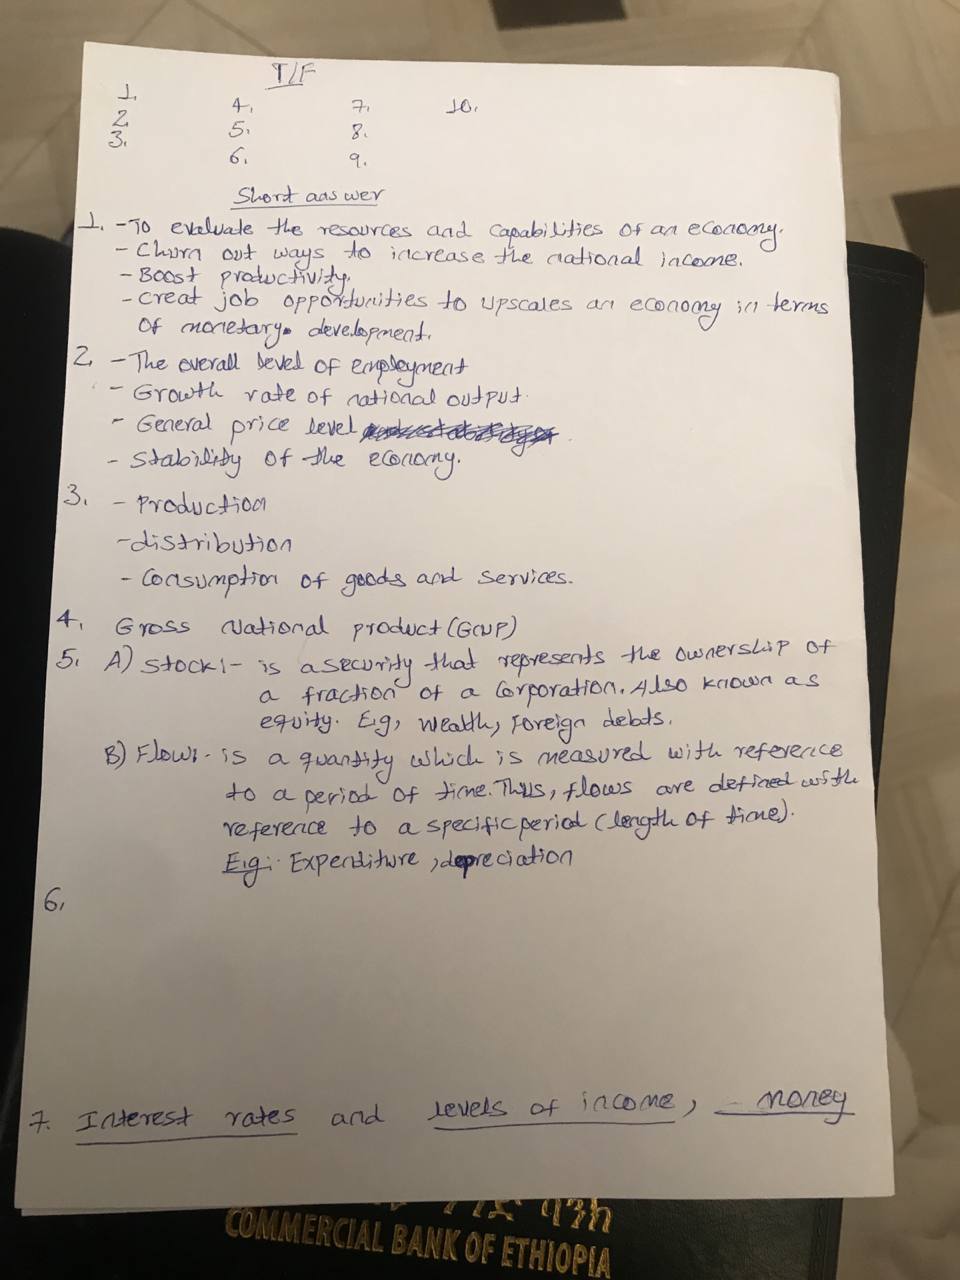 T/F
1. 4. 7. 10.
2. 5. 8.
3. 6. 9.
Short answer
1. - To evaluate the resources and capabilities of an economy.
- Churn out ways to increase the national income.
- Boost productivity.
- Creat job opportunities to upscales an economy in terms
of monetary development.
2. - The overall level of employment
- Growth rate of national output.
- General price level
- Stability of the economy.
3. - Production
- distribution
- Consumption of goods and services.
4. Gross National product (GNP)
5. A) Stock:- is a security that represents the ownership of
a fraction of a Corporation. Also known as
equity. E.g, wealth, Foreign debts.
B) Flow:- is a quantity which is measured with reference
to a period of time. Thus, flows are defined with
reference to a specific period (length of time).
E.g:- Expenditure, depreciation
6.
7. Interest rates and levels of income, - money
ባንክ
COMMERCIAL BANK OF ETHIOPIA